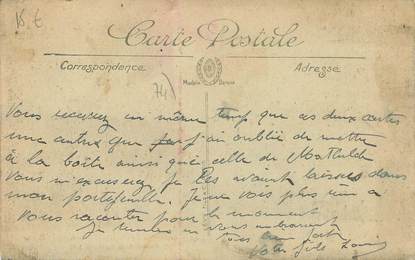 15 €
Carte Postale
Correspondance
Adresse
Modèle Déposé
74)
Vous recevrez en même temps que ces deux cartes
une autre que j'ai oublié de mettre
à la boîte ainsi que celle de Mathilde
vous m'excuserez je les avait laissés dans
mon portefeuille. Je ne vois plus rien a
vous raconter pour le moment
Je termine en vous embrassant
tous
Votre fils